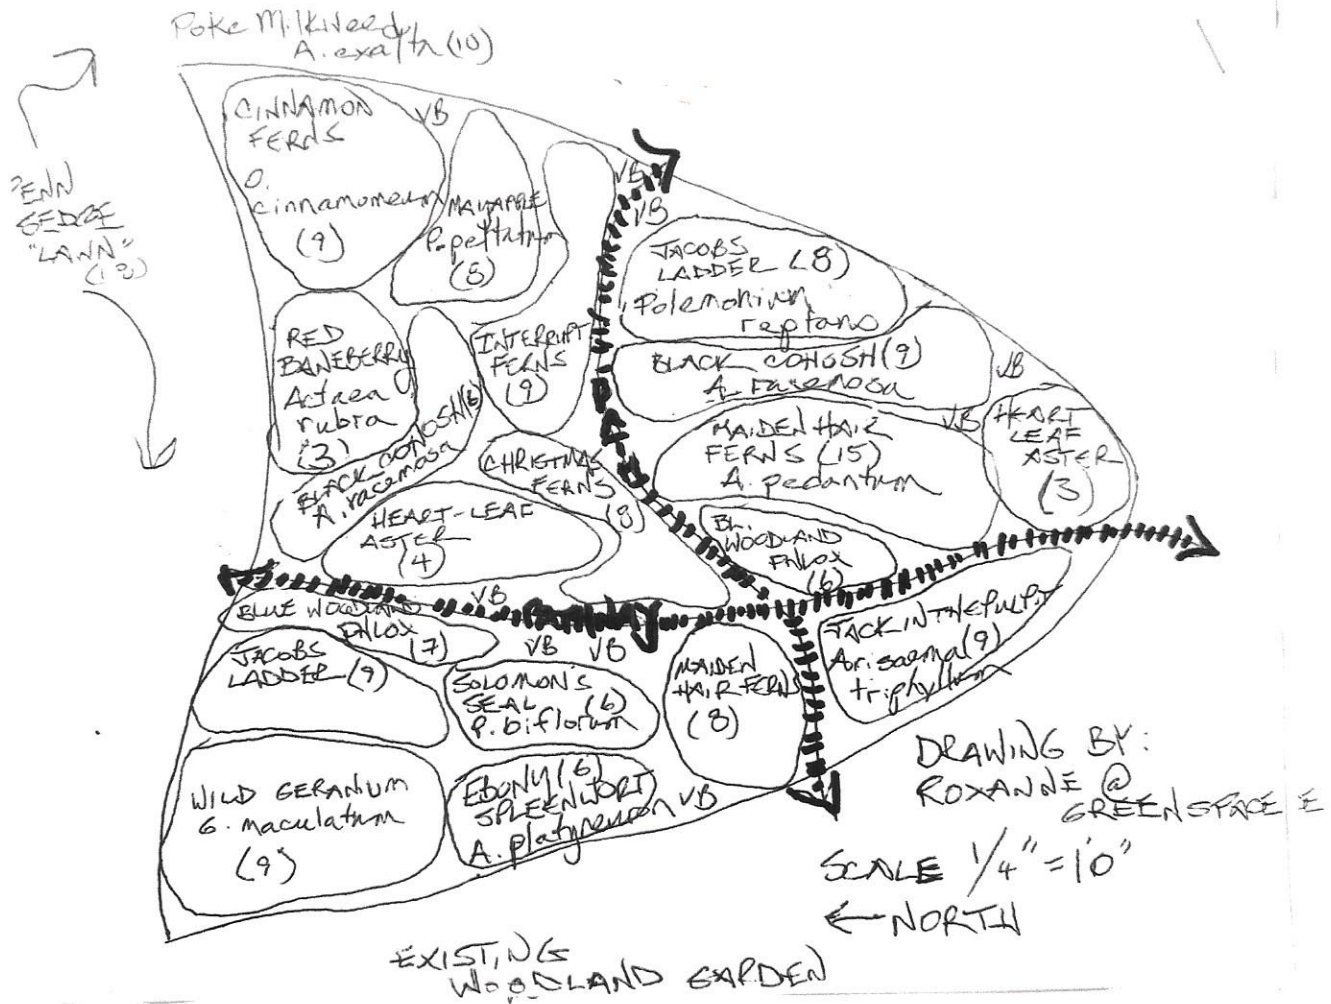 Poke Milkweed
A. exalta (10)
CINNAMON
FERNS
O.
cinnamomeum
(9)
VB
MAYAPPLE
P. peltatum
(8)
VB
VB
PENN
SEDGE
"LAWN"
JACOBS
LADDER (8)
Polemonium
reptans
RED
BANEBERRY
Actaea
rubra
(3)
INTERRUPT
FERNS
(9)
BLACK COHOSH (9)
A. racemosa
VB
BLACK COHOSH (6)
A. racemosa
CHRISTMAS
FERNS
(8)
MAIDEN HAIR
FERNS (15)
A. pedantum
VB
HEART
LEAF
ASTER
(3)
HEART-LEAF
ASTER
(4)
BL.
WOODLAND
PHLOX
(6)
VB
PATHWAY
BLUE WOODLAND
PHLOX
(7)
VB
VB
JACOBS
LADDER (9)
SOLOMON'S
SEAL (6)
P. biflorum
MAIDEN
HAIR FERNS
(8)
JACK IN THE PULPIT
Arisaema (9)
triphyllum
WILD GERANIUM
G. maculatum
(9)
EBONY (6)
SPLEENWORT
A. platyneuron
VB
DRAWING BY:
ROXANNE @
GREENSPACE E
SCALE 1/4" = 1'0"
← NORTH
EXISTING
WOODLAND GARDEN